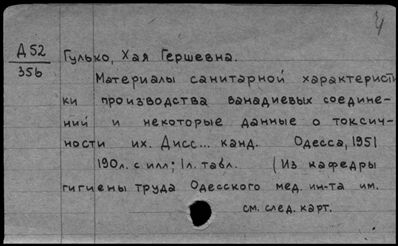 Д 52
356
Гулько, Хая Гершевна.
Материалы санитарной характеристи
ки производства ванадиевых соедине-
ний и некоторые данные о токсич-
ности их. Дисс... канд. Одесса, 1951
190л. с илл; 1л. табл. (Из кафедры
гигиены труда Одесского мед. ин-та им.
см. след. карт.